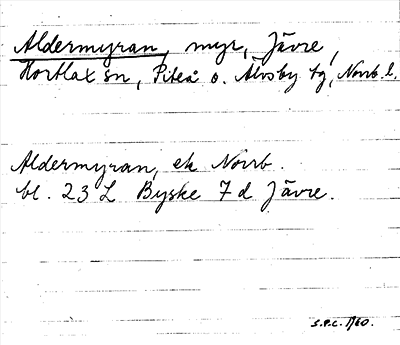 Aldermyran, myr, Jävre,
Hortlax sn, Piteå o. Älvsby tg, Norrb. l.
Aldermyran, ek Norrb.
bl. 23 L Byske 7 d Jävre.
S.P.C. 1960.